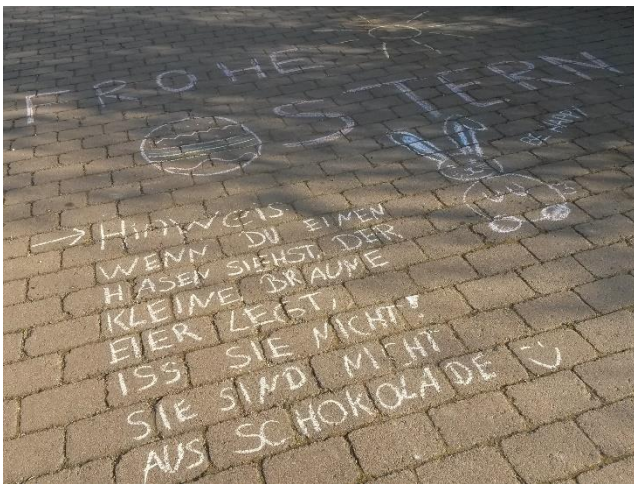 FROHE
OSTERN
BE HAPPY
→ HINWEIS
WENN DU EINEN
HASEN SIEHST, DER
KLEINE, BRAUNE
EIER LEGT,
ISS SIE NICHT!
SIE SIND NICHT
AUS SCHOKOLADE :)